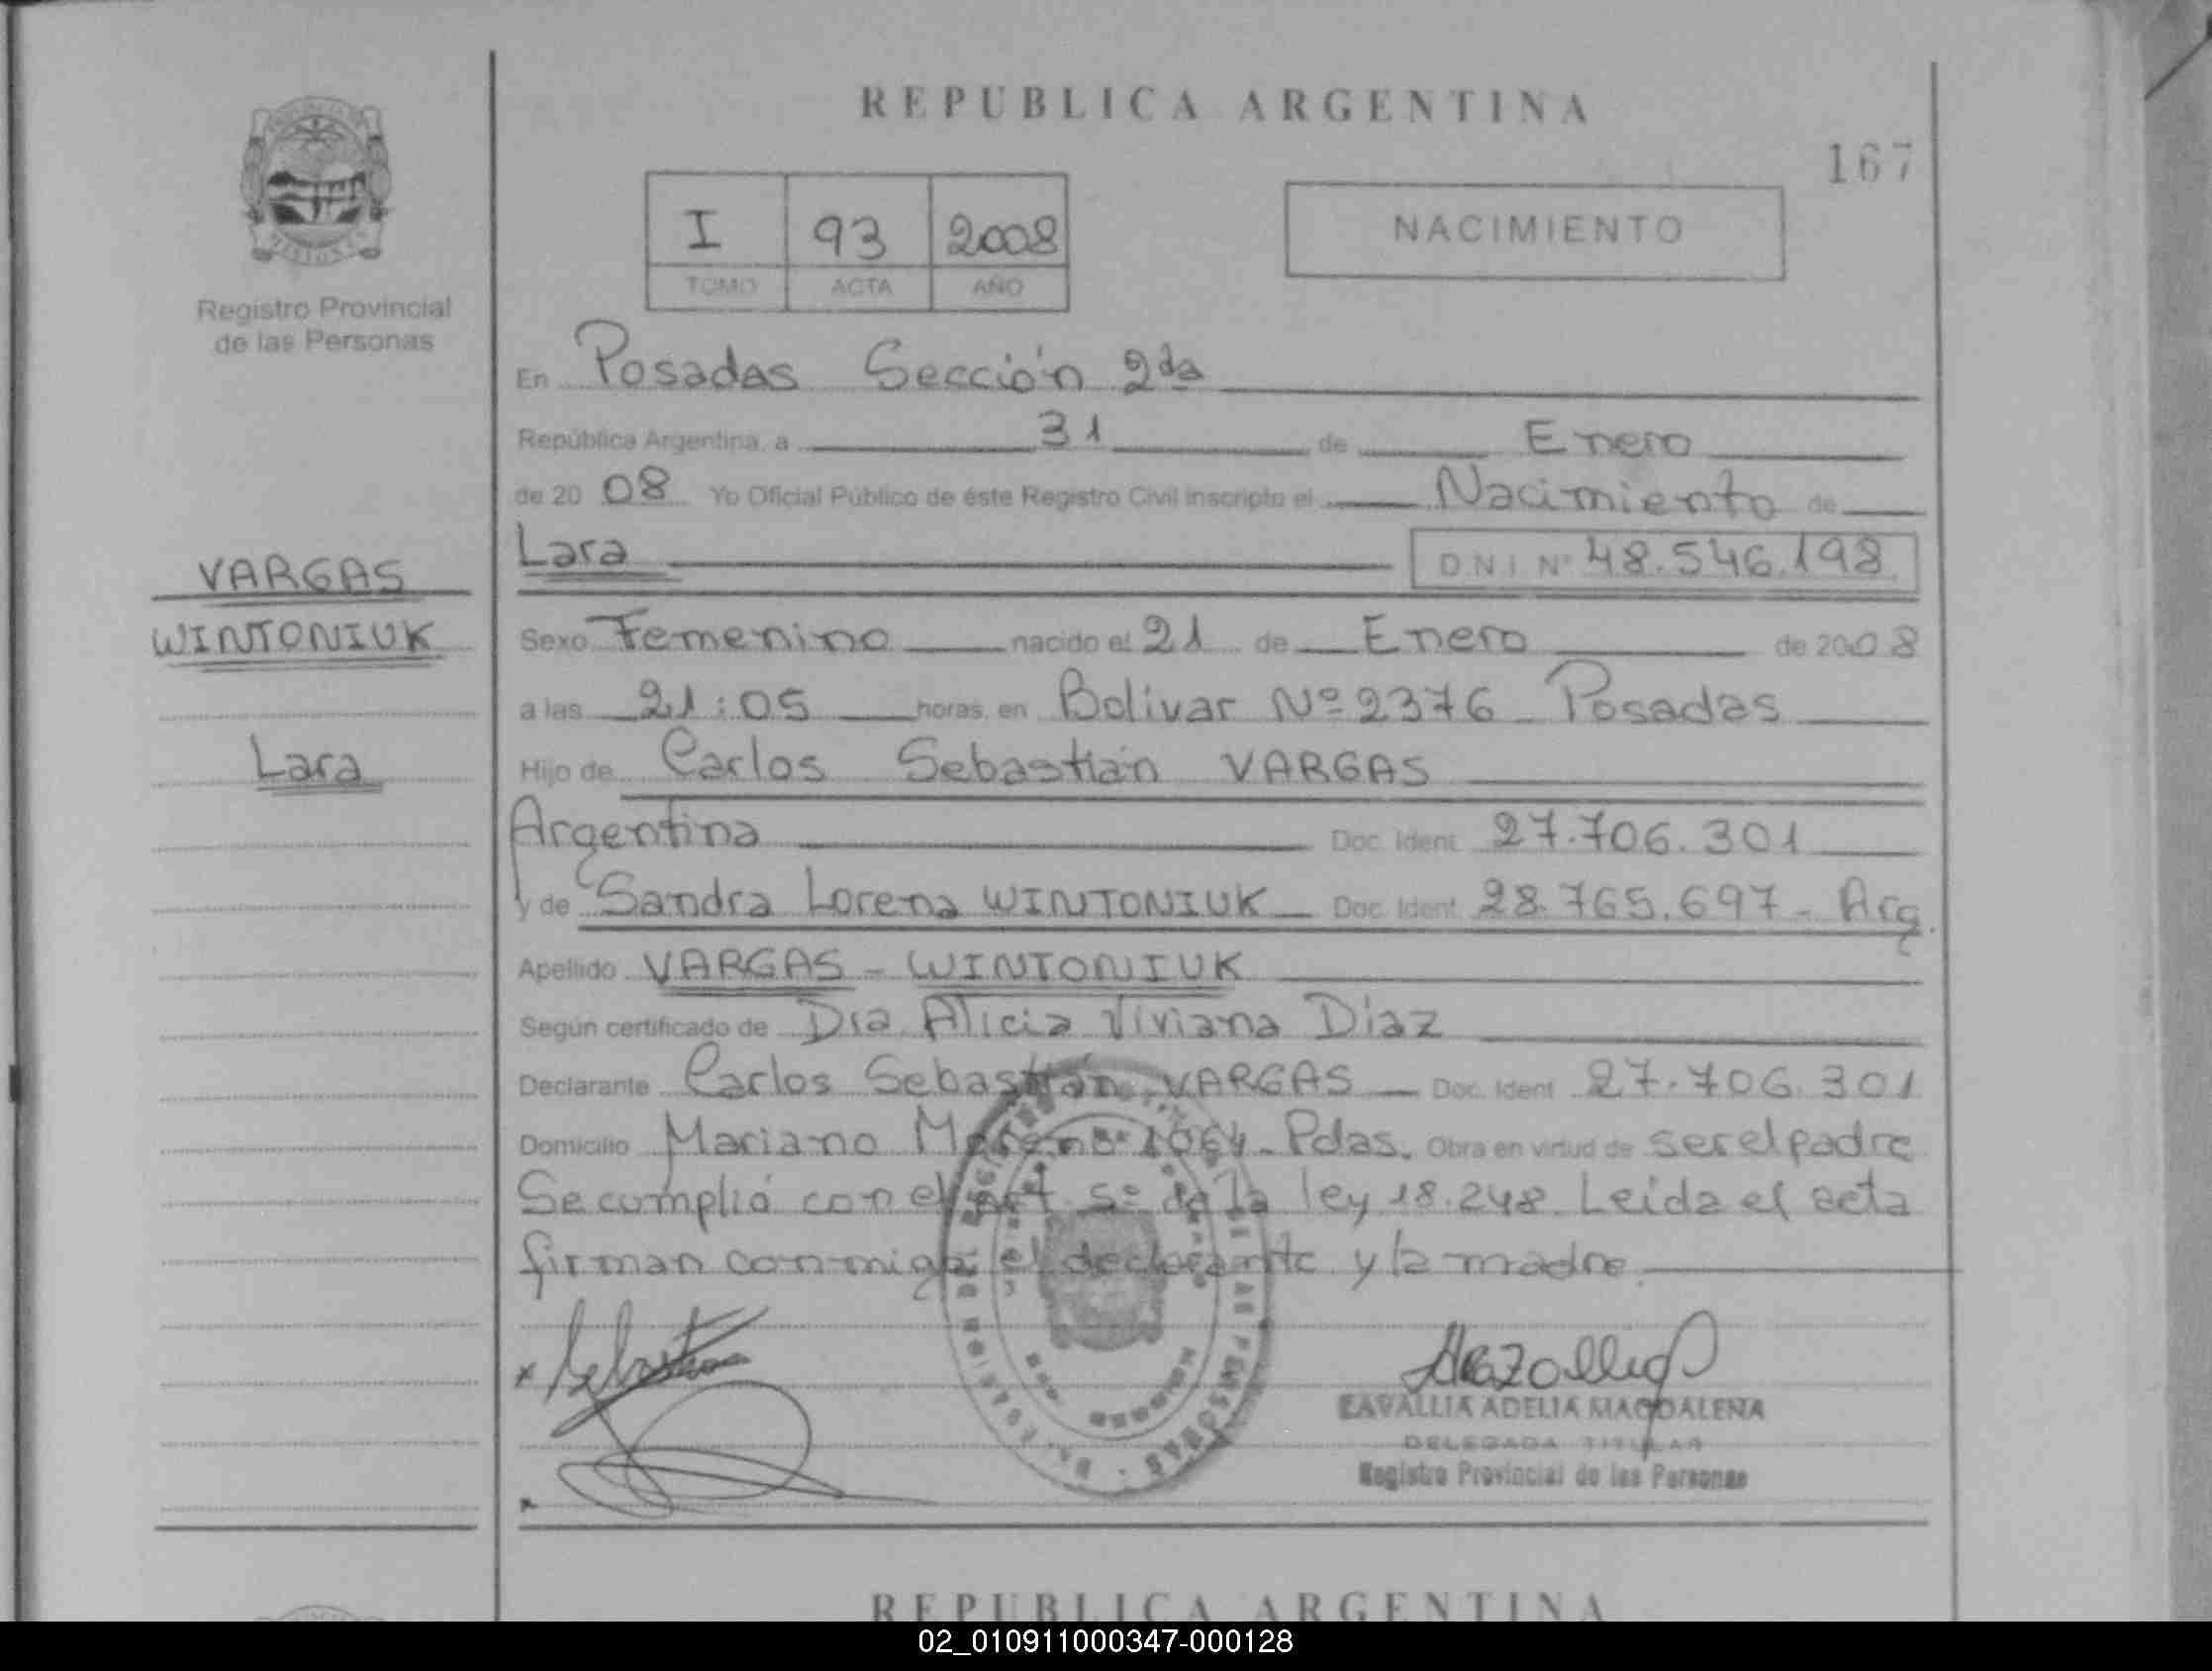 REPUBLICA ARGENTINA
167
I 93 2008
TOMO ACTA AÑO
NACIMIENTO
Registro Provincial
de las Personas
En Posadas Sección 2da
República Argentina, a 31 de Enero
de 2008 Yo Oficial Público de éste Registro Civil inscripto el Nacimiento de
Lara D.N.I. Nº 48.546.198
VARGAS
WINTONIUK
Lara
Sexo Femenino nacido el 21 de Enero de 2008
a las 21:05 horas, en Bolívar Nº 2376 Posadas
Hijo de Carlos Sebastián VARGAS
Argentina Doc. Ident. 27.706.301
y de Sandra Lorena WINTONIUK Doc. Ident. 28.765.697 - Arg.
Apellido VARGAS - WINTONIUK
Según certificado de Dra Alicia Viviana Diaz
Declarante Carlos Sebastián VARGAS Doc. Ident. 27.706.301
Domicilio Mariano Moreno 1064 - Pdas. Obra en virtud de ser el padre
Se cumplió con el art 5º de la ley 18.248. Leída el acta
firman conmigo el declarante y la madre.
ZAVALLIA ADELIA MAGDALENA
DELEGADA TITULAR
Registro Provincial de las Personas
REPUBLICA ARGENTINA
02_010911000347-000128